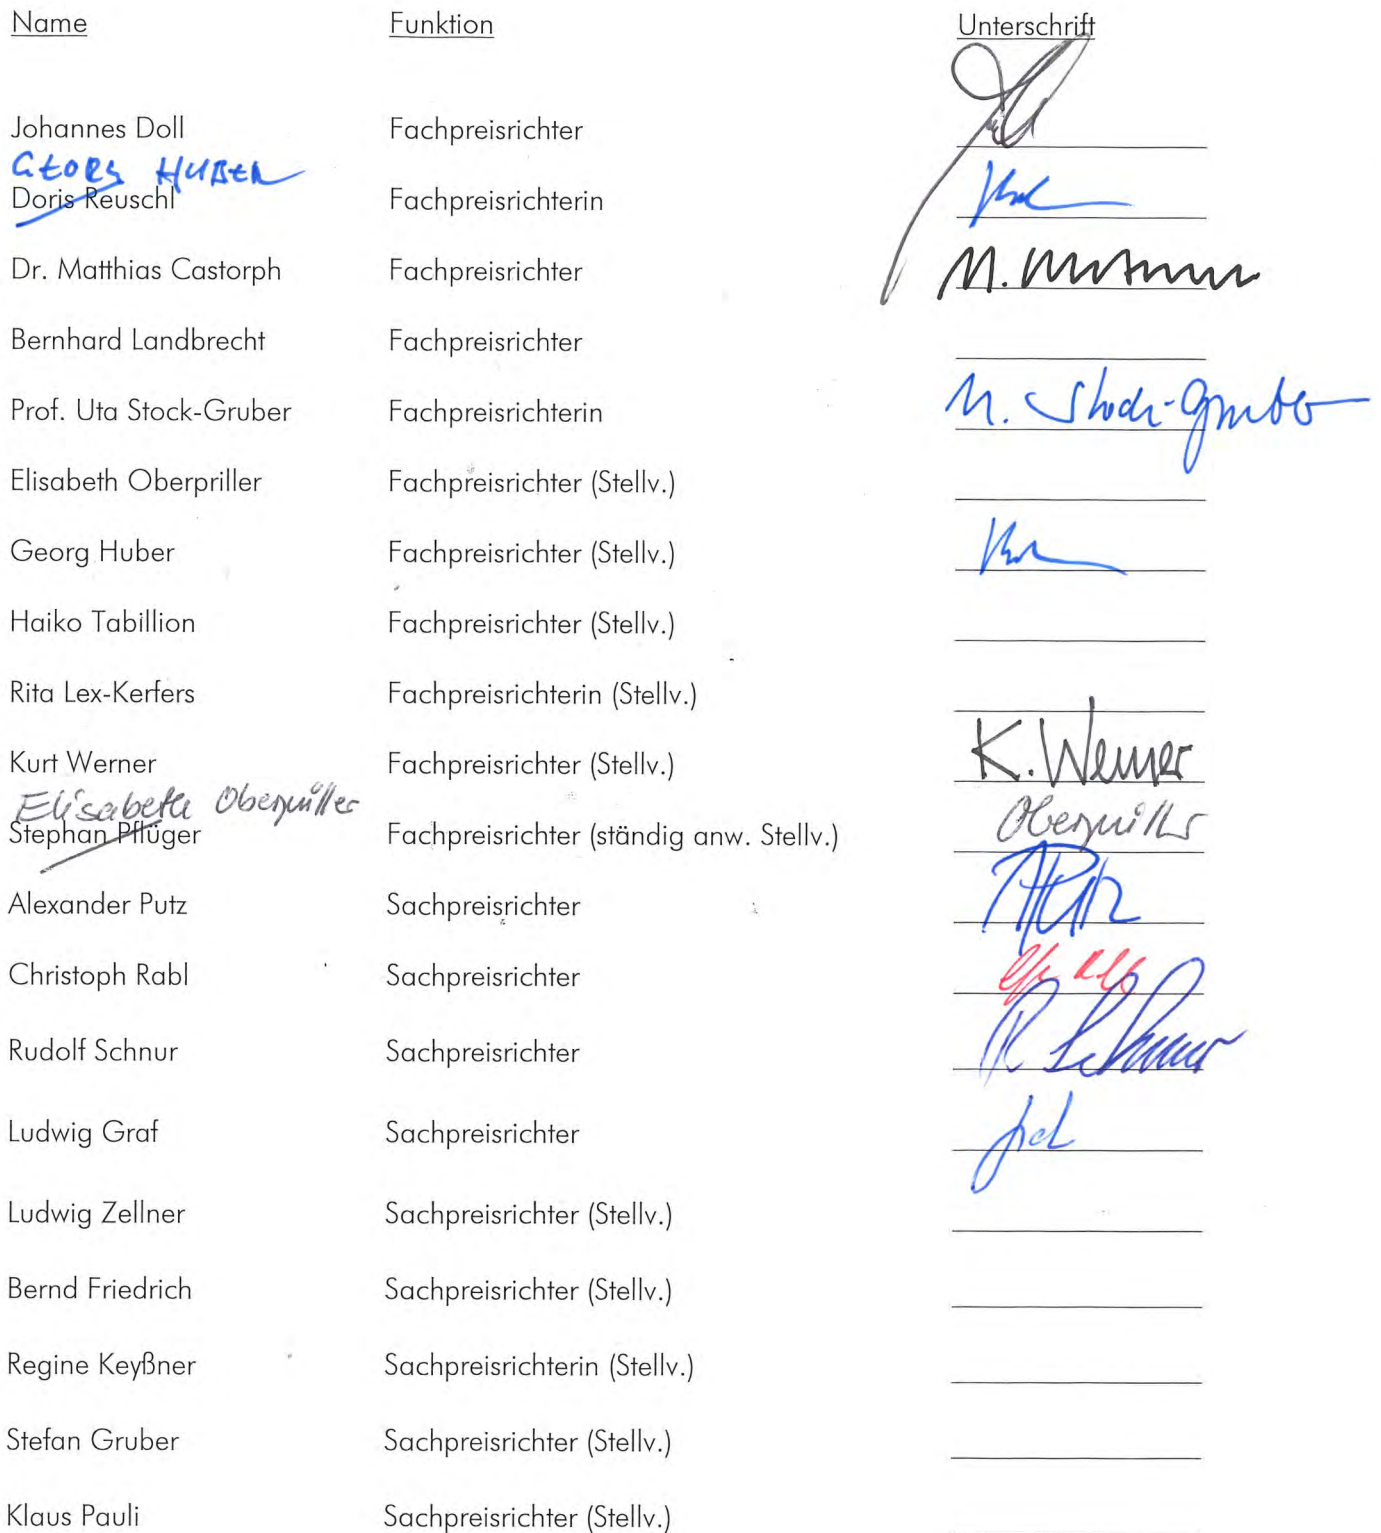 Name Funktion Unterschrift
Johannes Doll Fachpreisrichter
GEORG HUBER
Doris Reuschl Fachpreisrichterin
Dr. Matthias Castorph Fachpreisrichter
Bernhard Landbrecht Fachpreisrichter
Prof. Uta Stock-Gruber Fachpreisrichterin U. Stock-Gruber
Elisabeth Oberpriller Fachpreisrichter (Stellv.)
Georg Huber Fachpreisrichter (Stellv.)
Haiko Tabillion Fachpreisrichter (Stellv.)
Rita Lex-Kerfers Fachpreisrichterin (Stellv.)
Kurt Werner Fachpreisrichter (Stellv.) K. Werner
Elisabeth Oberpriller
Stephan Pflüger Fachpreisrichter (ständig anw. Stellv.) Oberpriller
Alexander Putz Sachpreisrichter
Christoph Rabl Sachpreisrichter
Rudolf Schnur Sachpreisrichter R Schnur
Ludwig Graf Sachpreisrichter
Ludwig Zellner Sachpreisrichter (Stellv.)
Bernd Friedrich Sachpreisrichter (Stellv.)
Regine Keyßner Sachpreisrichterin (Stellv.)
Stefan Gruber Sachpreisrichter (Stellv.)
Klaus Pauli Sachpreisrichter (Stellv.)